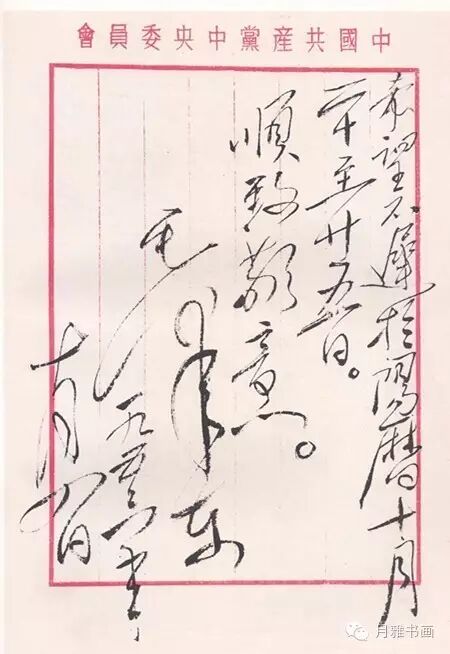 中國共產黨中央委員會
希望不遲於陽曆十月
二十至廿五日。
順致敬意。
毛澤東
一九五六年
十月八日
月雅书画